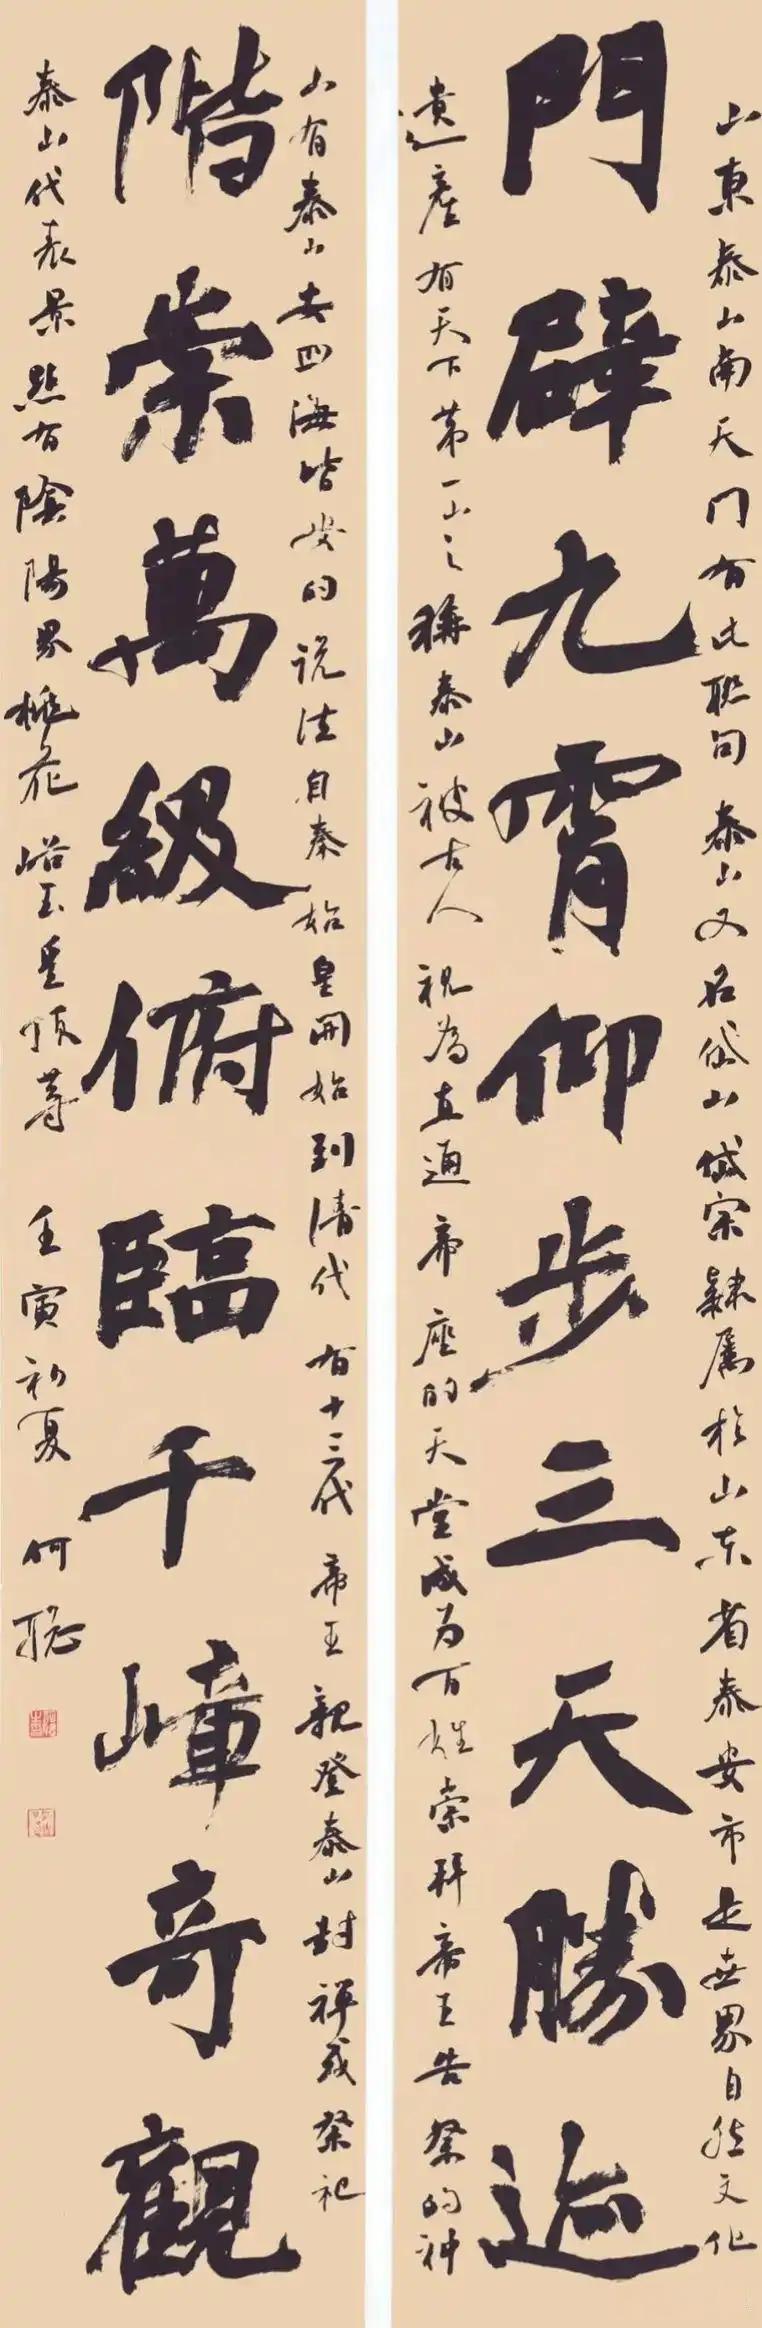 門辟九霄仰步三天勝迹
階崇萬級俯臨千嶂奇觀
山東泰山南天门有此联句 泰山又名岱山岱宗隸属於山东省泰安市是世界自然文化
遗產有天下第一山之稱泰山被古人視為直通帝座的天堂成为百姓崇拜帝王告祭的神
山有泰山安四海皆安的说法自秦始皇開始到清代有十三代帝王親登泰山封禅或祭祀
泰山代表景點有陰陽界桃花峪玉皇顶等 壬寅初夏 何聪